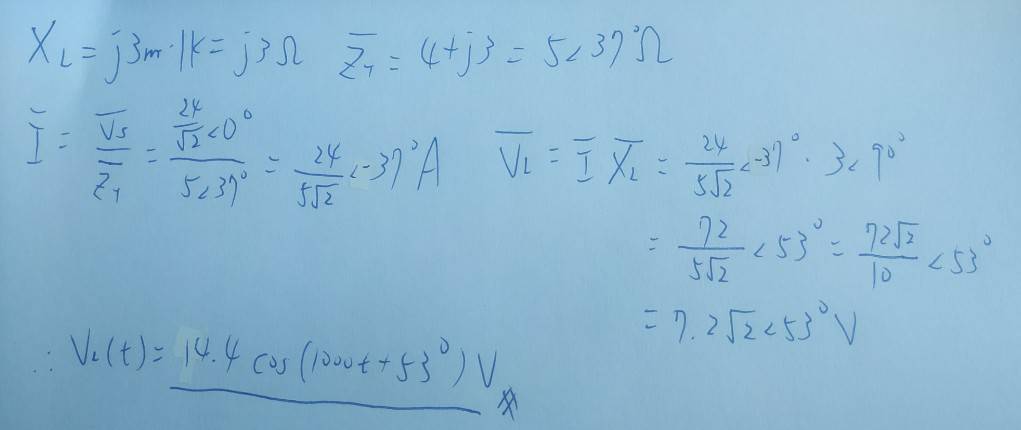 X_L = j3m·1k = j3Ω   Z̄_T = 4+j3 = 5∠37°Ω
Ī = V̄s/Z̄_T = (24/√2 ∠0°)/(5∠37°) = 24/(5√2) ∠-37° A   V̄_L = Ī X̄_L = 24/(5√2) ∠-37° · 3∠90°
= 72/(5√2) ∠53° = 72√2/10 ∠53°
= 7.2√2∠53° V
∴ V_L(t) = 14.4 cos(1000t+53°) V